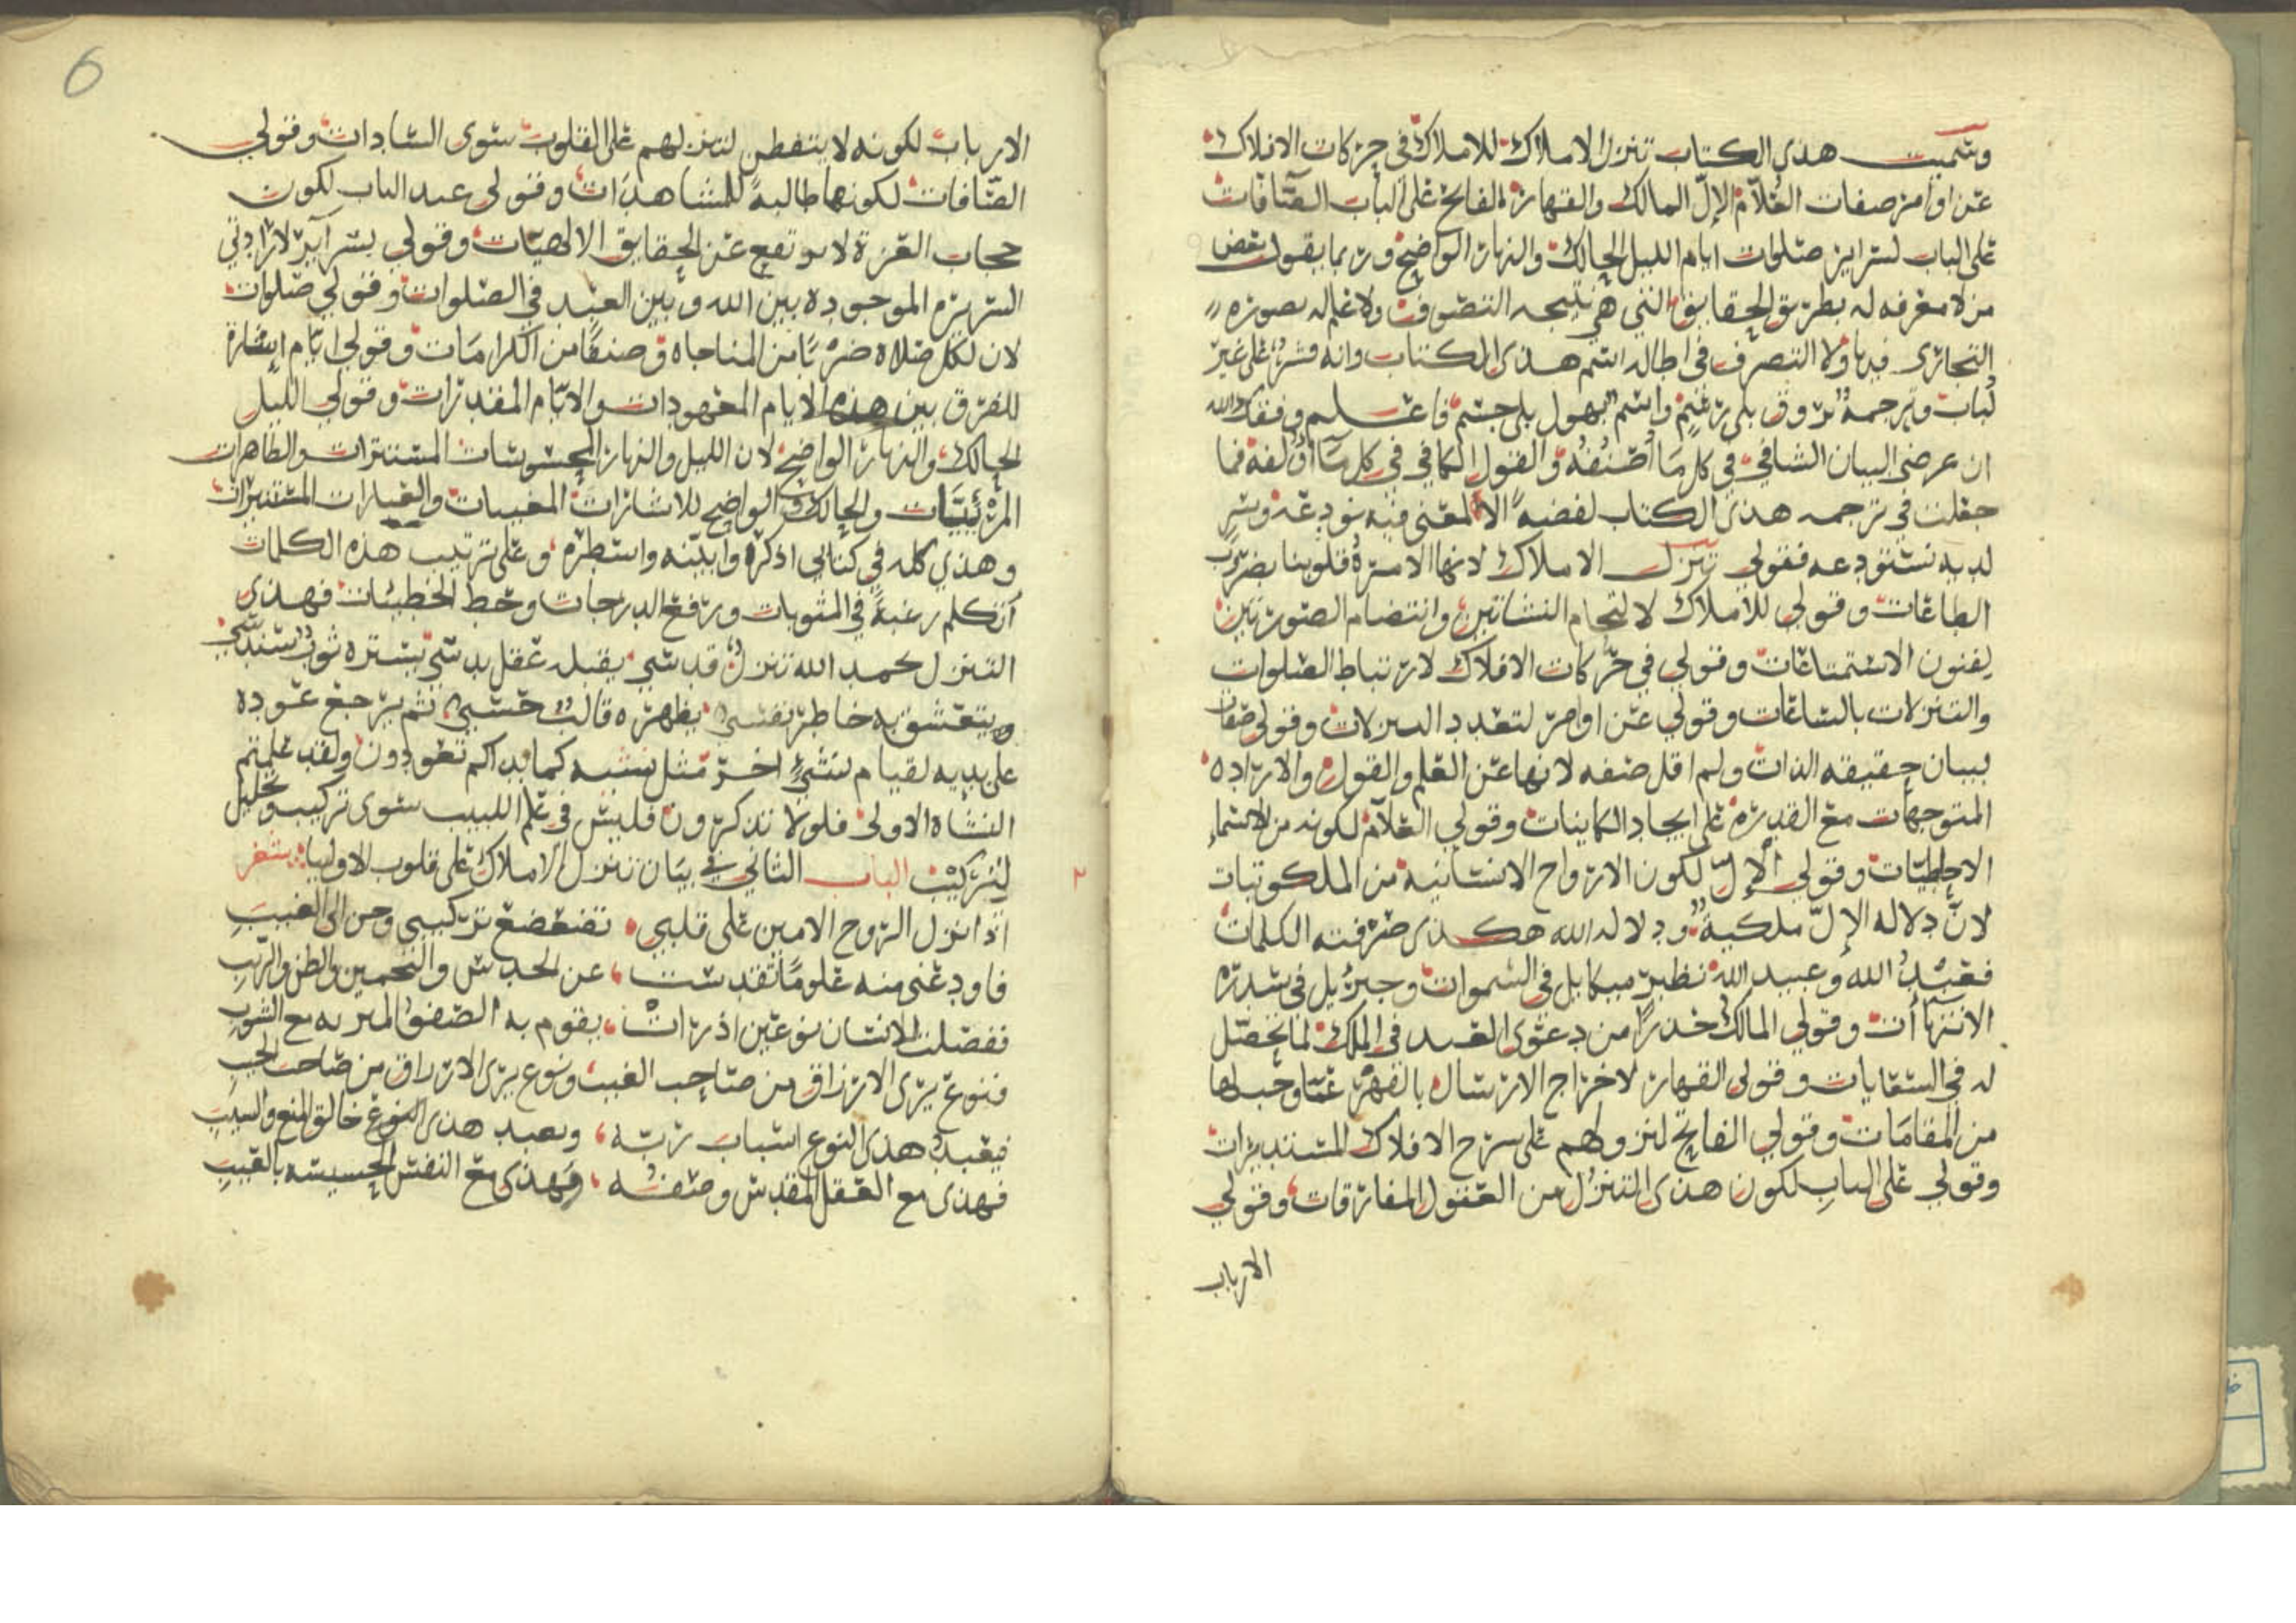 وسميت هدى الكتاب تنزل الاملاك للاملاك في حركات الافلاك
عن اوامر صفات العلام الإلّ المالك والقهار الفاتح على الباب الصّافات
على الباب لسراير صلوات ايام الليل الحالك والنهار الواضح وربما يقول بعض
من لا معرفه له بطريق الحقايق التي هي نتيجه التصوف ولا علم له بصوره
التجارى فيها ولا التصرف في اطاله اسم هدى الكتاب وانه قشر على غير
لباب وترجمة تروق بلى رغيم واسم يهول بلى جسم فاعلم وفقك الله
ان عرضى البيان الشافي في كل مَا أُصَنِفُهُ والقول الكافي في كل مَا أُولفهُ فما
جعلت في ترجمه هدى الكتاب لفضةً الا لمعنى فيه نودعه وسرٍ
لديه نستودعه فقولي تنزل الاملاك لانها الامرة قلوبنا بضروب
الطاعات وقولي للاملاك لالتحام النشاتين وانتضام الصورتين
لفنون الاستمتاعات وقولي في حركات الافلاك لارتباط الصلوات
والتنزلات بالساعات وقولي عن اوامر لتعدد التنزلات وقولي صفات
ببيان حقيقه الذات ولم اقل صفه لانها عن العلم والقول والاراده
المتوجهات مع القدره على ايجاد الكاينات وقولي العلام لكونه من الاسماء
الاحاطيّات وقولي الإلّ لكون الارواح الانسانيه من الملكوتيات
لانّ دلاله الإلّ ملكيةٌ ودلاله الله هكذى صرفته الكلمات
فعَبْدُ الله وعبيد الله نظير ميكايل في السموات وجبرئيل في سدره
الانتهاأت وقولي المالك حذراً من دعوى العبد في الملك لما يحصل
له في السقايات وقولي القهار لاخراج الارسال بالقهر عمّا وجب لها
من المقامَات وقولي الفاتح لنزولهم على سرح الافلاك المستديرات
وقولي على البابِ لكون هذى التنزل من العقول المفارقات وقولي
الارباب
6
الارباب لكونه لا يتفطن لتنزلهم على القلوب سوى السادات وقولي
الصّافات لكونها طالبةً للمشاهدَات وقولي عبد الباب لكون
حجاب العزة لا يرتفع عن الحقايق الالهيّات وقولي بسراير لارادتي
السر الموجوده بين الله وبين العبد في الصلوات وقولي صلوات
لان لكل صلاه ضرْبًا من المناجاه وصنفًا من الكرامَات وقولي ايّام اشارة
للفرق بين هذه الايام المعهودات والايّام المقدرات وقولي الليل
الحالك والنهار الواضح لان الليل والنهار المحسوسات المستترات والظاهرات
المرْئِيَّات والحالك والواضح للاشارات المغيبات والعبارات المستنيرات
وهذي كله في كتابي اذكره وابيّنه واسطره وعلى ترتيب هذه الكلمات
أتكلم رغبةً في المثوبات ورفع الدرجات وحط الخطيئات فهذى
التنزل بحمد الله تنزلٌ قدسي يقبله عقل بدسّي يستره ثوب سندسي
ويتعشق به خاطر نفسي يظهره قالبٌ حسّي ثم يرجع عَوده
على بديه لقيام نشىءٍ اخر مثل نشيه كما بداكم تعودون ولقد علمتم
النشاه الاولى فلولا تذكرون فليس في علم اللبيب سوى تركيب وتحليل
لتركيب الباب الثاني في بيَان تنزل الاملاك على قلوب الاولياء شعر
٢
اذا نزل الروح الامين على قلبي تضعضع تركيبي وحن الى الغيب
فاودعني منه علومًا تقدست عن الحدس والتخمين والظن والريب
ففصلت الانسان نوعين اذ رات يقوم به الصفو المنزه مع الشوب
فنوع يرى الارزاق من صاحب الغيب ونوع يرى الارزاق من صاحب الجيب
فيعبد هذى النوع اسباب ربّه ويعبد هذى النوع خالق المنع والسيب
فهذى مع العقل المقدس وصفه وَهذى مع النفس الخسيسه بالعيبِ